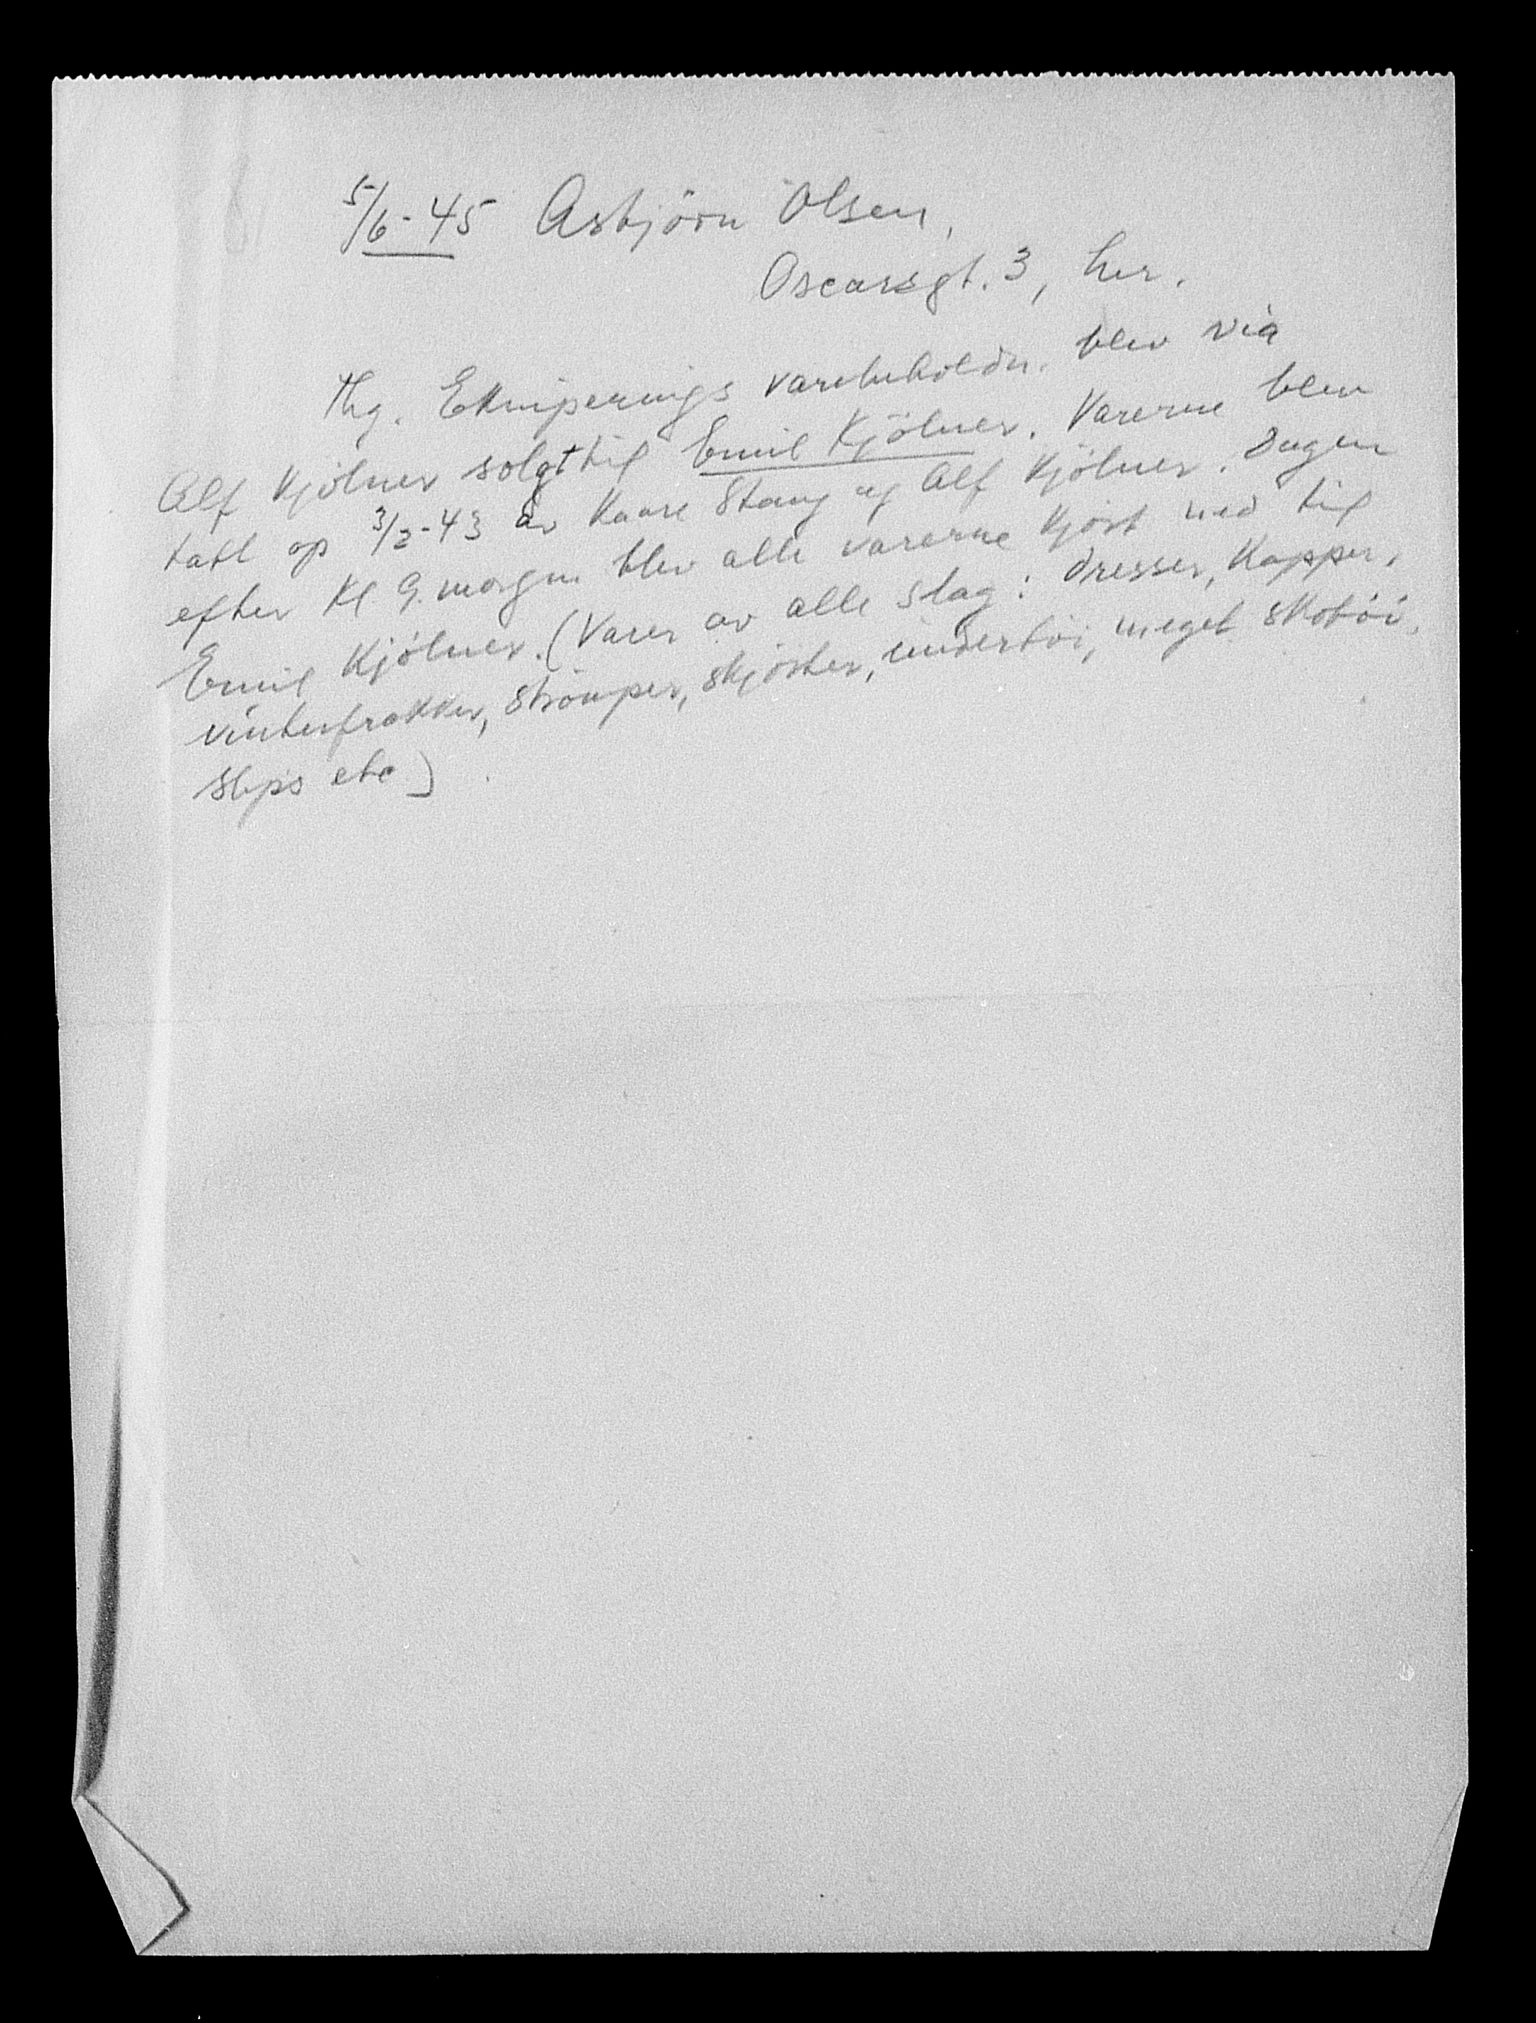 5/6-45 Asbjörn Olsen,
Oscarsgt. 3, her.
Thg. Ekviperings varebeholdn. blev via
Alf Kjölner solgt til Emil Kjölner. Varerne blev
tatt op 3/2-43 av Kaare Stang og Alf Kjölner. Dagen
efter Kl 9. morgen blev alle varerne kjört ned til
Emil Kjölner. (Varer av alle slag: dresser, Kapper,
vinterfrakker, Strömper, skjörter, undertöi, meget Skotöi,
Slips etc)